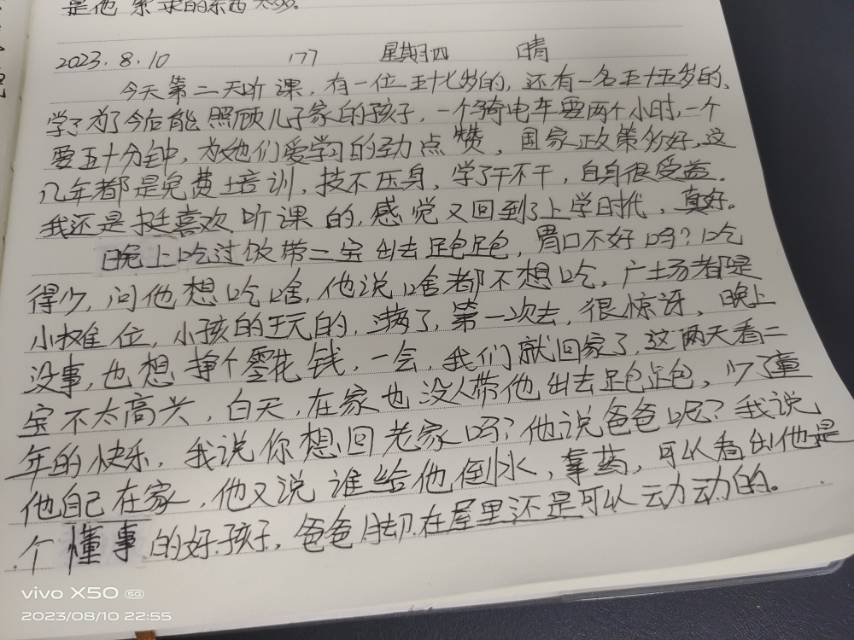 是他 索求的东西太多。
2023.8.10 177 星期四 晴
今天第二天听课,有一位五十七岁的,还有一名五十五岁的,
学了为了今后能照顾儿子家的孩子,一个骑电车要两个小时,一个
要五十分钟,为她们爱学习的劲点赞,国家政策多好,这
几年都是免费培训,技不压身,学了干不干,自身很受益。
我还是挺喜欢听课的,感觉又回到了上学时代,真好。
晚上吃过饭带二宝出去跑跑,胃口不好吗?吃
得少,问他想吃啥,他说啥都不想吃,广场都是
小摊位,小孩的玩的,满了,第一次去,很惊讶,晚上
没事,也想挣个零花钱,一会,我们就回家了,这两天看二
宝不太高兴,白天,在家也没人带他出去跑跑,少了童
年的快乐,我说你想回老家吗?他说爸爸呢?我说
他自己在家,他又说谁给他倒水,拿药,可以看出他是
个懂事的好孩子,爸爸脚在屋里还是可以动动的。
vivo X50 5G
2023/08/10 22:55